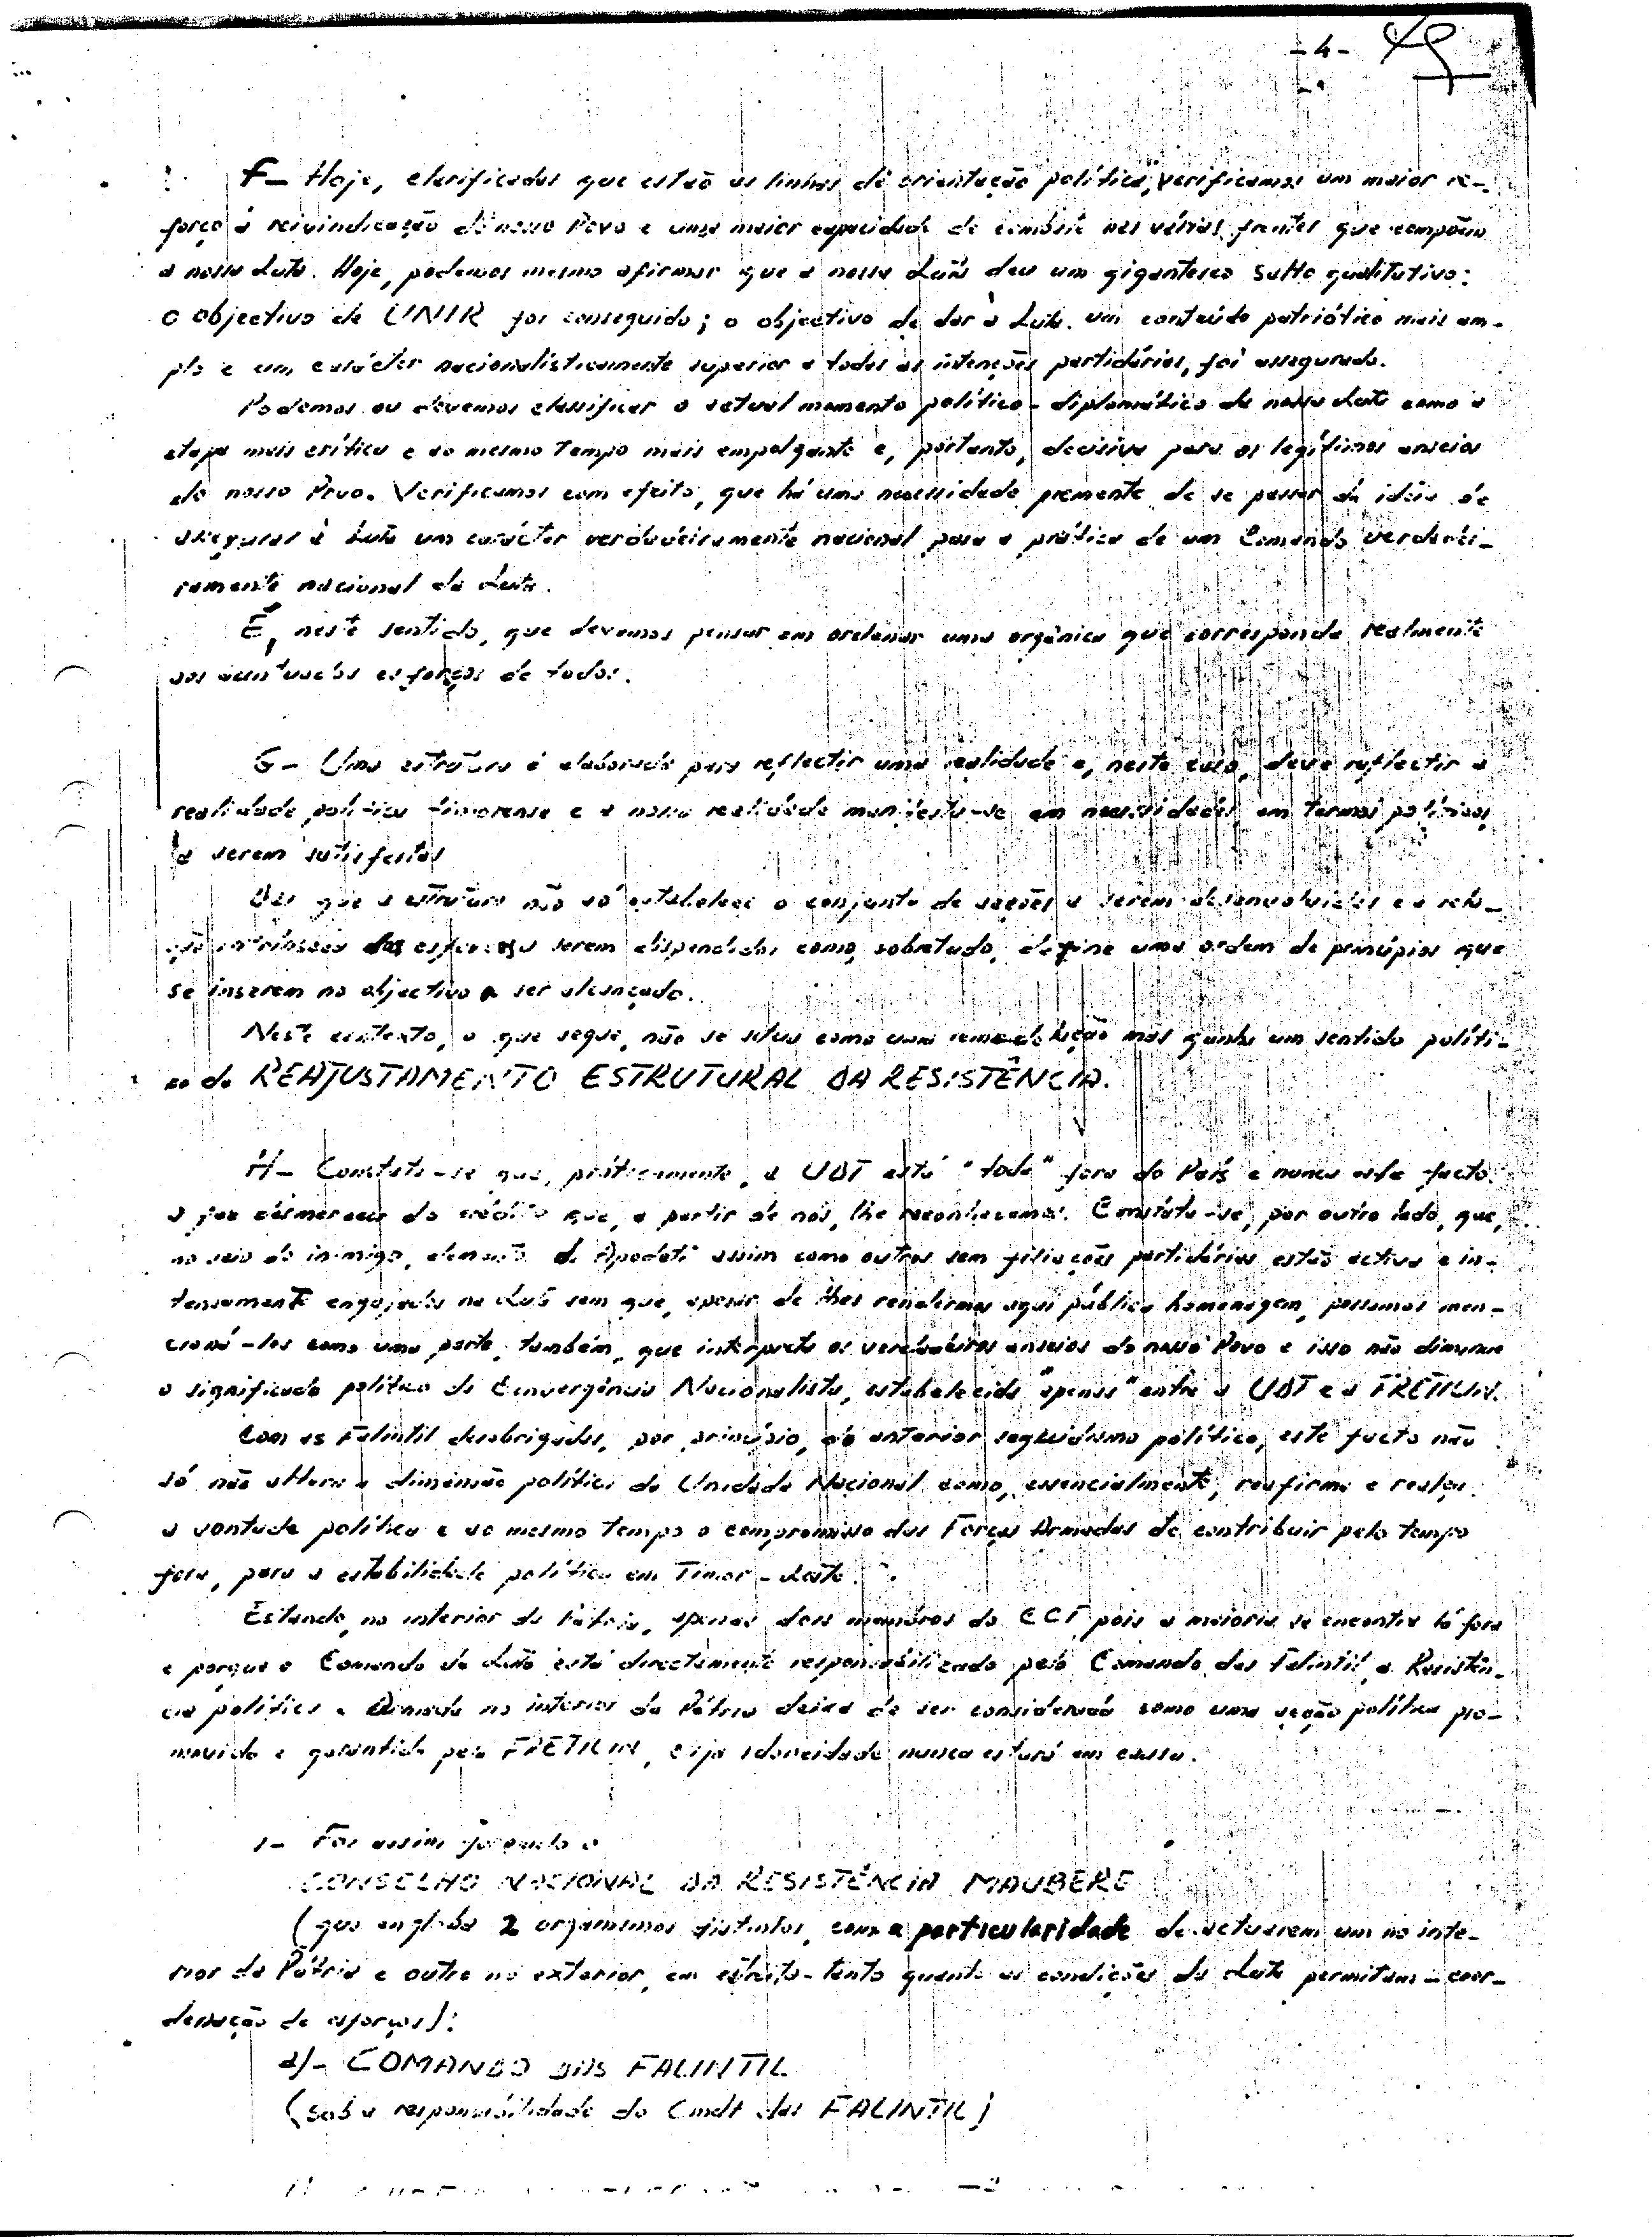 -4-
F- Hoje, clarificadas que estão as linhas de orientação política, verificamos um maior re-
forço à reivindicação do nosso Povo e uma maior capacidade de combate nas várias frentes que compõem
a nossa Luta. Hoje, podemos mesmo afirmar que a nossa Luta deu um gigantesco salto qualitativo:
o objectivo de UNIR foi conseguido; o objectivo de dar à Luta um conteúdo patriótico mais am-
plo e um carácter nacionalisticamente superior a todas as intenções partidárias, foi assegurado.
Podemos ou devemos classificar o actual momento político-diplomático da nossa Luta como a
etapa mais crítica e ao mesmo tempo mais empolgante e, portanto, decisiva para os legítimos anseios
do nosso Povo. Verificamos com efeito, que há uma necessidade premente de se passar da ideia de
assegurar à Luta um carácter verdadeiramente nacional para a prática de um Comando verdadei-
ramente nacional da Luta.
É, neste sentido, que devemos pensar em ordenar uma orgânica que corresponda realmente
aos esforços de todos.
G- Uma estrutura é elaborada para reflectir uma realidade e, neste caso, deve reflectir a
realidade política timorense e a nossa realidade manifesta-se em necessidades em termos políticos
a serem satisfeitas
Daí que a estrutura não só estabelece o conjunto de acções a serem desenvolvidas e a rela-
ção intrínseca dos esforços a serem dispendidos como, sobretudo, define uma ordem de princípios que
se inserem no objectivo a ser alcançado.
Neste contexto, o que segue, não se situa como uma remodelação mas ganha um sentido políti-
co do REAJUSTAMENTO ESTRUTURAL DA RESISTÊNCIA.
H- Constata-se que, práticamente, a UDT está "toda" fora do País e nunca este facto
a faz desmerecer do crédito que, a partir de nós, lhe reconhecemos. Constata-se, por outro lado, que,
no seio do inimigo, elementos da Apodeti assim como outros sem filiações partidárias estão activa e in-
tensamente engajados na Luta sem que, apesar de lhes rendermos aqui pública homenagem, possamos men-
cioná-los como uma parte, também, que interpreta os verdadeiros anseios do nosso Povo e isso não diminue
o significado político da Convergência Nacionalista, estabelecida "apenas" entre a UDT e a FRETILIN.
Com as Falintil desobrigadas, por princípio, do anterior seguidismo político, este facto não
só não altera a dimensão política da Unidade Nacional como, essencialmente, reafirma e realça
a vontade política e ao mesmo tempo o compromisso das Forças Armadas de contribuir pelo tempo
fora, para a estabilidade política em Timor-Leste.
Estando, no interior da Pátria, apenas dois membros do CCF pois a maioria se encontra lá fora
e porque o Comando da Luta está directamente responsabilizado pelo Comando das Falintil, a Resistên-
cia política e Armada no interior da Pátria deixa de ser considerada como uma acção política pro-
movida e garantida pela FRETILIN, cuja idoneidade nunca estará em causa.
I- Foi assim formado o
CONSELHO NACIONAL DA RESISTÊNCIA MAUBERE
(que engloba 2 organismos distintos, com a particularidade de actuarem um no inte-
rior da Pátria e outro no exterior, em estreita-tanto quanto as condições da Luta permitam-coor-
denação de esforços):
a)- COMANDO DAS FALINTIL
(sob a responsabilidade do Cmdt das FALINTIL)